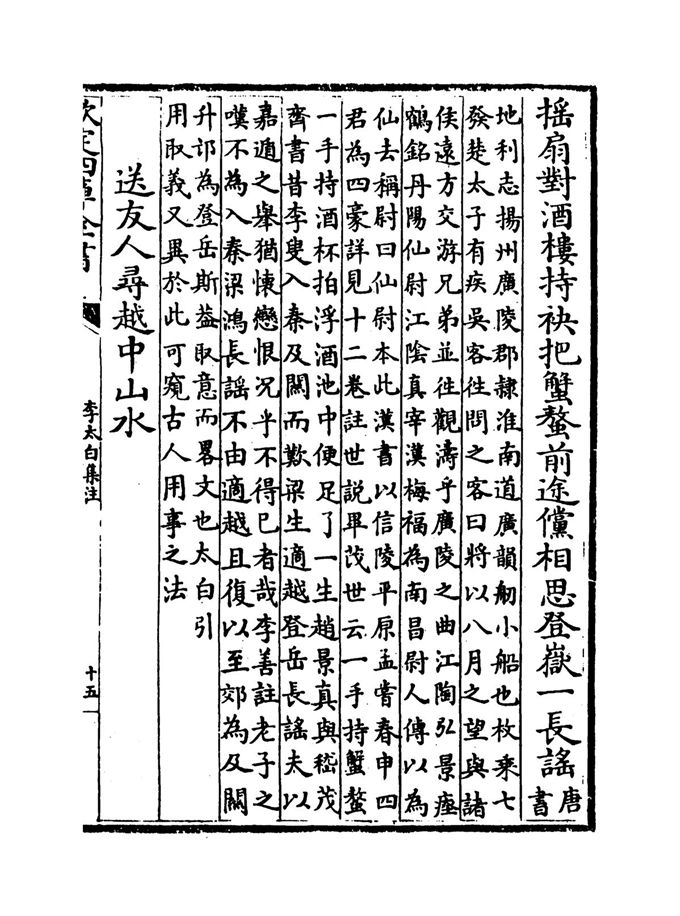 搖扇對酒樓持袂把蟹螯前途儻相思登嶽一長謠唐
書
地利志揚州廣陵郡隸淮南道廣韻舠小船也枚乗七
發楚太子有疾吳客往問之客曰將以八月之望與諸
侯逺方交游兄弟並往觀濤乎廣陵之曲江陶弘景瘞
鶴銘丹陽仙尉江隂真宰漢梅福為南昌尉人傳以為
仙去稱尉曰仙尉本此漢書以信陵平原孟嘗春申四
君為四豪詳見十二卷註世説畢茂世云一手持蟹螯
一手持酒杯拍浮酒池中便足了一生趙景真與嵇茂
齊書昔李叟入秦及闗而歎梁生適越登岳長謡夫以
嘉遁之舉猶懷戀恨况乎不得已者哉李善註老子之
嘆不為入秦梁鴻長謡不由適越且復以至郊為及闗
升邙為登岳斯葢取意而畧文也太白引
用取義又異於此可窺古人用事之法
送友人尋越中山水
欽定四庫全書
李太白集注
十五